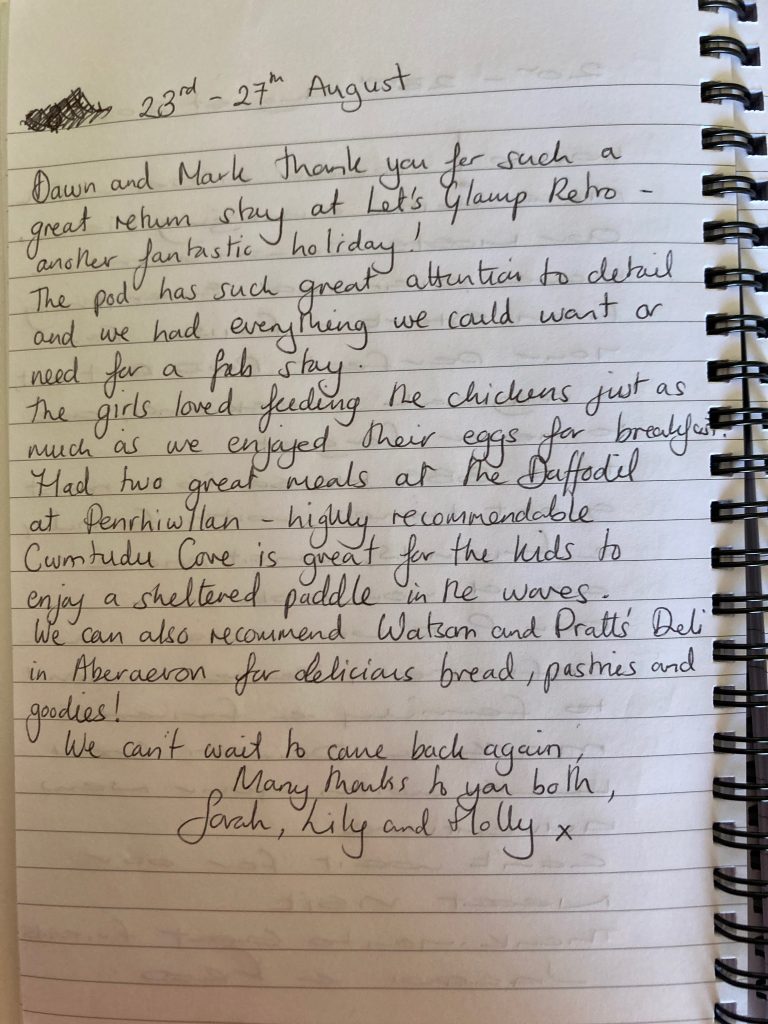 23rd - 27th August
Dawn and Mark thank you for such a
great return stay at Let's Glamp Retro -
another fantastic holiday!
The pod has such great attention to detail
and we had everything we could want or
need for a fab stay.
The girls loved feeding the chickens just as
much as we enjoyed their eggs for breakfast.
Had two great meals at the Daffodil
at Penrhiwllan - highly recommendable
Cwmtudu Cove is great for the kids to
enjoy a sheltered paddle in the waves.
We can also recommend Watson and Pratts' Deli
in Aberaeron for delicious bread, pastries and
goodies!
We can't wait to come back again,
Many thanks to you both,
Sarah, Lily and Molly x